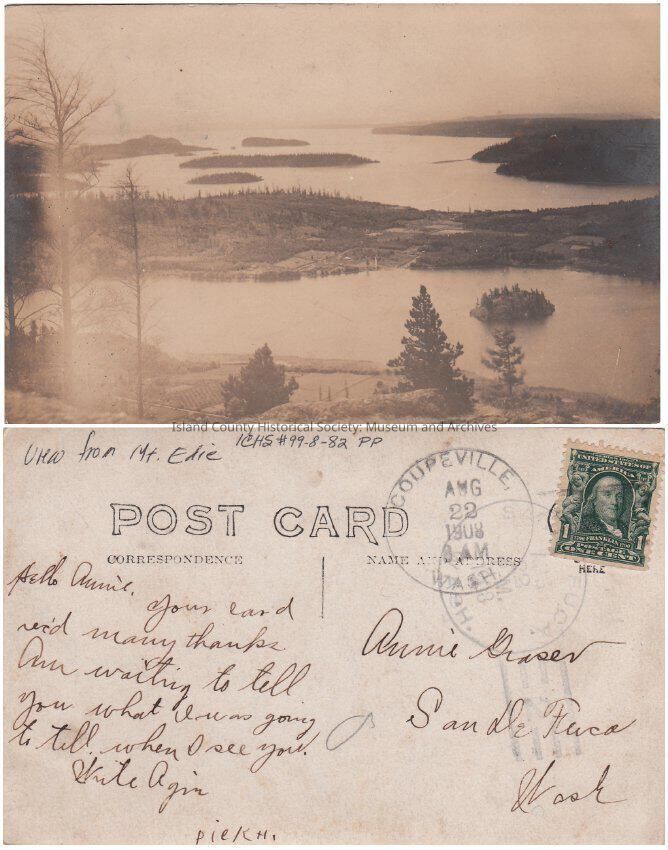 Island County Historical Society: Museum and Archives
View from Mt. Edie
ICHS #99-8-82 PP
POST CARD
CORRESPONDENCE
NAME AND ADDRESS
COUPEVILLE,
AUG
22
1908
9 AM
WASH.
UNITED STATES OF
AMERICA
FRANKLIN
1 1
POSTAGE
ONE CENT
HERE
FUCA.
Hello Annie.
Your card
rec'd many thanks
Am waiting to tell
you what I was going
to tell, when I see you.
Write Agin
Annie Graser
San De Fuca
Wash